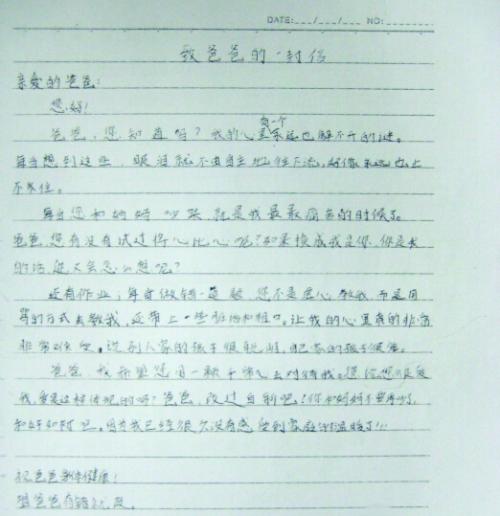 DATE:___/___/___ NO:________
致爸爸的一封信
亲爱的爸爸:
您好!
爸爸,您知道吗?我的心里有一个永远也解不开的谜。
每当想到这些,眼泪就不由自主地往下流,好像永远也止
不住。
每当您和妈妈吵架就是我最最痛苦的时候了。
爸爸您有没有试过将心比心呢?如果换成我是你,你是我
的话,您又会怎么想呢?
还有作业,每当做错一道题,您不是耐心教我,而是用
骂的方式去教我,还带上一些脏话和粗口。让我的心里真的非常
非常难受。说别人家的孩子很
爸爸,我希望您用一颗平常心去对待我。
我,爸爸,改过自新吧!你和妈妈不要再吵了,
和好如初吧。因为我已经很久没有感受到家庭的温暖了!!!
祝爸爸身体健康!
望爸爸有错就改。